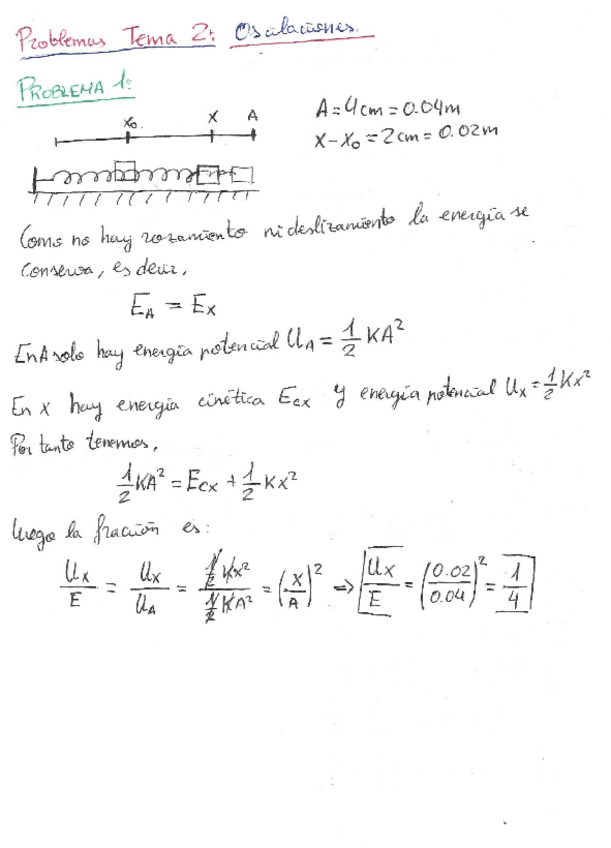 Problemas Tema 2: Oscilaciones.
PROBLEMA 1:
X₀ X A
A = 4cm = 0.04m
X - X₀ = 2cm = 0.02m
Como no hay rozamiento ni deslizamiento la energía se
conserva, es decir,
E_A = E_X
En A solo hay energía potencial U_A = 1/2 KA²
En x hay energía cinética E_cx y energía potencial U_x = 1/2 Kx²
Por tanto tenemos,
1/2 KA² = E_cx + 1/2 Kx²
Luego la fracción es:
U_x/E = U_x/U_A = (1/2 Kx²)/(1/2 KA²) = (x/A)² => U_x/E = (0.02/0.04)² = 1/4